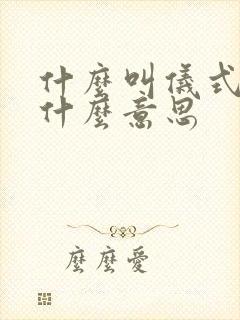 什麼叫儀式
什麼意思
麼麼愛